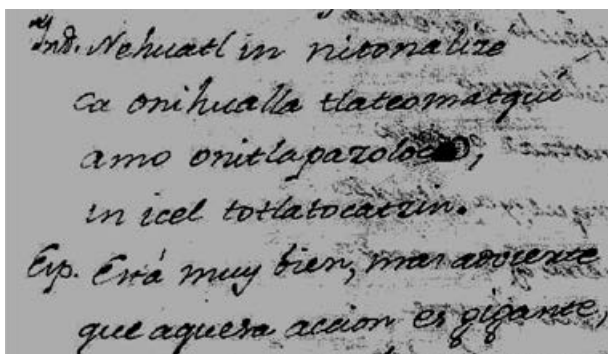 Ind. Nehuatl in nitonalize
ca onihualla tlateomatqui
amo onitlapazoloc,
in icel totlatocatzin.
Esp. Está muy bien, mas advierte
que aquesa accion es gigante,